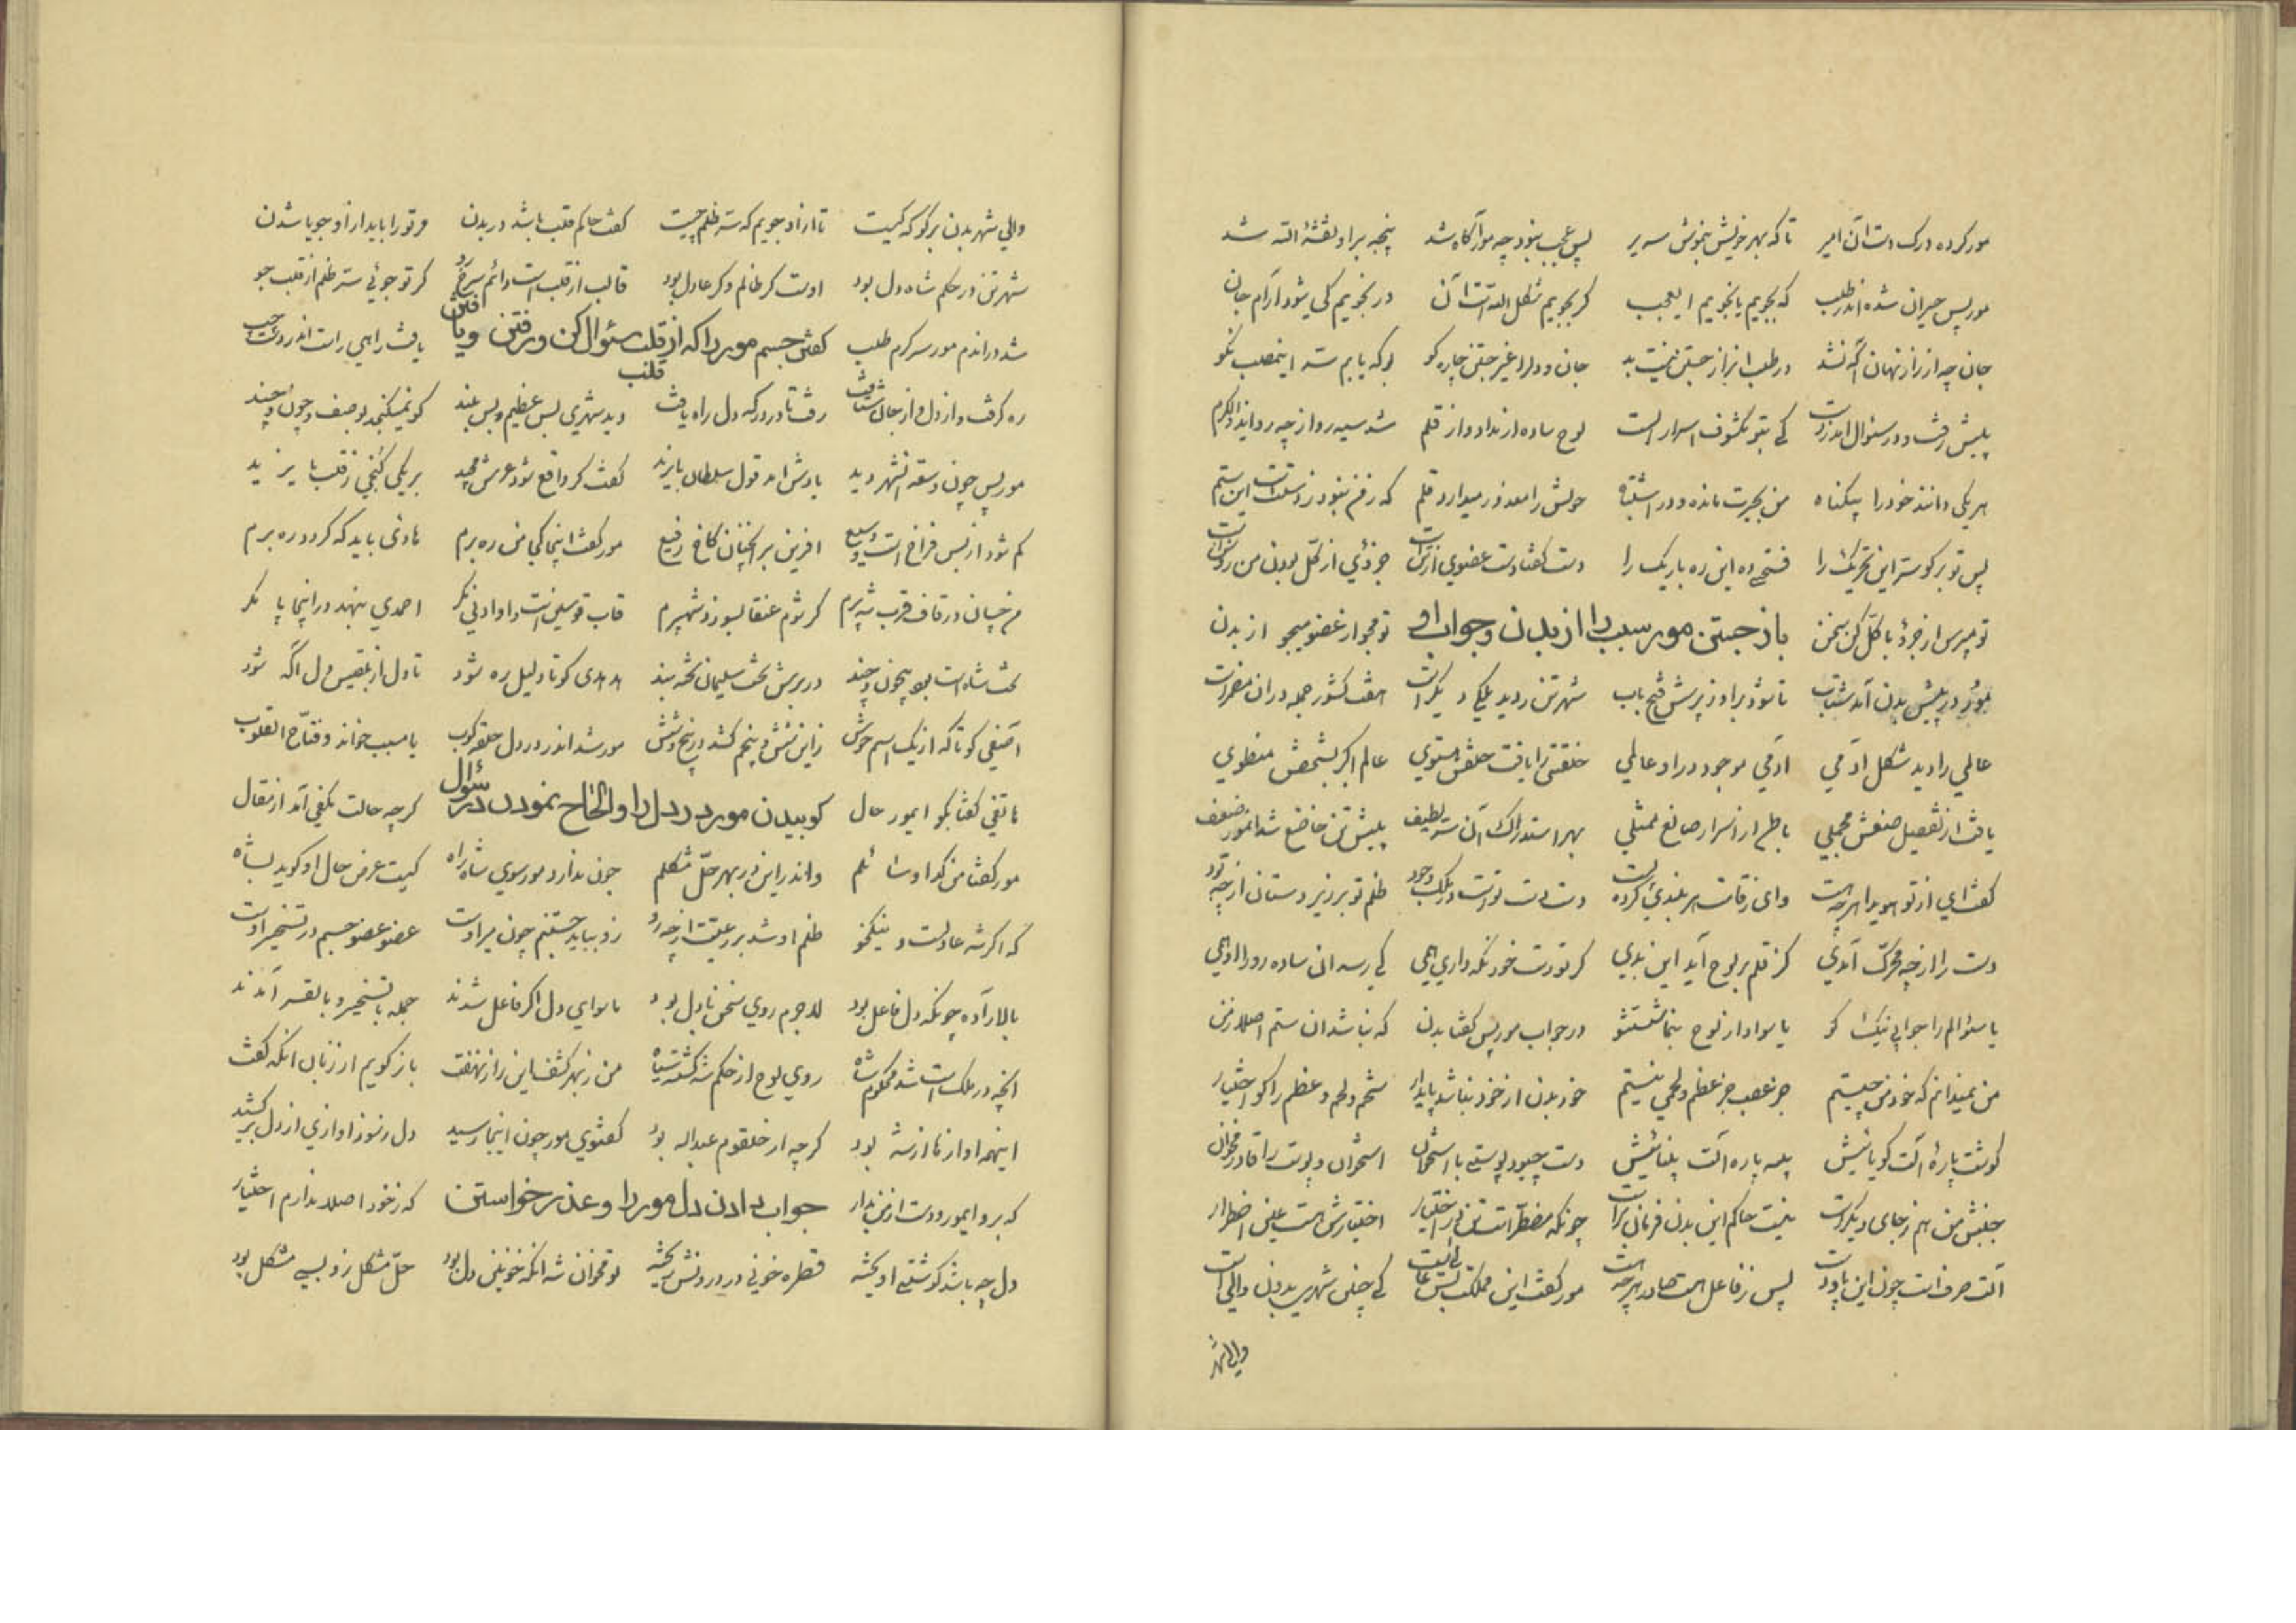 مور کرده درک دست آن امیر تا که بهر خویش بنموش سریر پس عجب بنود چه مور آگاه شد پنجه بر او نقشهٔ الله شد
مور پس حیران شده اندر طلب که بجویم یا نجویم ای عجب گر بجویم شکل الله است آن در نجویم کی شود آرام جان
جان چه از راز نهان آگه نشد در طلب از جستن نیست بد جان و دلرا غیر جستن چاره کو بو که یابم سر این مطلب نکو
پیش رفت و در سئوال کی بتو مکشوف اسرار لوح ساده از مداد و از قلم شد سیه رو از چه رو ای ذوالکرم
هر یکی دانند خود را بیگناه من بحیرت مانده و در اشتباه خویش را معذور میدارد قلم که ز من بنود ز دست است این ستم
پس تو بر گو سر این تحریک را فتحی ده این ره باریک را دست گفتا دست عضوی از جزئی از کل بودن من
تو مپرس از جزؤ با کل کن سخن باز جستن مور سبب را از بدن و جواب او تو مجو از عضو میجو از بدن
مور در پیش بدن آمد شتاب تا شود بر او ز پرسش فتح باب شهر تن را دید هفت کشور جمله در آن
عالمی را دید شکل آدمی آدمی موجود در او عالمی خلقتی را یافت خلقش مستوی عالم اکبر بشخصش منطوی
یافت از تفصیل صنعش مجملی با طراز اسرار صانع ممتلی بهر استدراک آن سر لطیف پیش تن خاضع شد آنمور ضعیف
گفت ای از تو هویدا هر چه هست وای ز قامت سر بلندی کرده دست دست تو است در ملک وجود ظلم تو بر زیر دستان از چه بود
دست را از چه محرک آمدی کز قلم بر لوح آید این بدی گر تو دست خود نگه داری همی کی رسد آن ساده رو را
یا سئوالم را جوابی نیک گو یا سواد از لوح بنما شستشو در جواب مور پس گفتا بدن که نباشد آن ستم اصلا ز من
من نمیدانم که خود من چیستم جز عصب جز عظم و لحمی نیستم خود بدن از خود نباشد پایدار شحم و لحم و عظم را کو اختیار
گوشت پارهٔ آلت گویائیش پیه پاره آلت بینائیش دست چبود پوستی با استخوان استخوان و پوست را قادر مخوان
جنبش من هم ز جای دیگر است نیست حاکم این بدن فرمان بر است چونکه مضطر است تن در اختیار اختیارش هست عین اضطرار
آلت صرف است چون این پا و دست پس ز فاعل هست صادر هر چه هست مور گفت این مملکت بس عالی است کی چنین شهری بدون والی است
والی شهر
والی شهر بدن بر گو که کیست تا از او جویم که سر ظلم چیست گفت حاکم قلب باشد در بدن مر تو را باید از او جویا شدن
شهر تن در حکم شاه دل بود اوست گر ظالم و گر عادل بود قالب از قلب است دائم سرخ رو گر تو جوئی سر ظلم از قلب جو
شد در اندم مور سر گرم طلب گفتن جسم مور را که از قلب سئوال کن و رفتن و یافتن قلب یافت راهی راست اندر
ره گرفت و از دل و از جان شتافت رفت تا در درگه دل راه یافت دید شهری بس عظیم و بس بلند کو نمیگنجد بوصف چون و چند
مور پس چون وسعت آنشهر دید یادش آمد قول سلطان بایزید گفت گر واقع شود عرش مجید بر یکی کنجی ز قلب بایزید
گم شود از بس فراخ است و وسیع آفرین بر آنچنان کاخ رفیع مور گفت اینجا کجا من ره برم هادئی باید که گردد رهبرم
من چسان در قاف قرب شه پرم گر شوم عنقا بسوزد شهپرم قاب قوسین است و او ادنی نگر احمدی بنهد در اینجا پا مگر
تخت شاه است بی چون و چند در برش تخت سلیمان تخته بند هدهدی کو تا دلیل ره شود تا دل از بلقیس دل آگه شود
آصفی کو تا که از یک اسم خوش زین شش و پنجم کشد در پنج و شش مور شد اندر در دل حلقه کوب یا مسبب خواند و فتاح القلوب
هاتفی گفتا بگو ای مور حال کوبیدن مور در دل را و الحاح نمودن در سئوال گر چه حالت یکفی آمد از مقال
مور گفتا من گدا و سائلم واندر این در بهر حل مشکلم چون ندارد مور سوی شاه راه کیست عرض حال او گوید بشاه
که اگر شه عادلست و نیکخو ظلم او شد بر رعیت از چه رو زو بباید جستنم چون میر اوست عضو عضو جسم در تسخیر اوست
بالاراده چونکه دل فاعل بود لاجرم روی سخن با دل بود ماسوای دل اگر فاعل شدند جمله با تسخیر و با لقسر آمدند
آنچه در ملک است شد محکوم شاه روی لوح از حکم شه گشته سیاه من ز بهر کشف این راز نهفت باز گویم از زبان آنکه گفت
اینهمه آواز ها از شه بود گر چه از حلقوم عبدالله بود گفتوی مور چون اینجا رسید دل رموز آوازی از دل بر کشید
که برو ای مور و دست از من بدار جواب دادن دل مور را و عذر خواستن که ز خود اصلا ندارم اختیار
دل چه باشد گوشتی آویخته قطره خونی در درونش ریخته تو مخوان شه آنکه خونین دل بود حل مشکل زو بسی مشکل بود